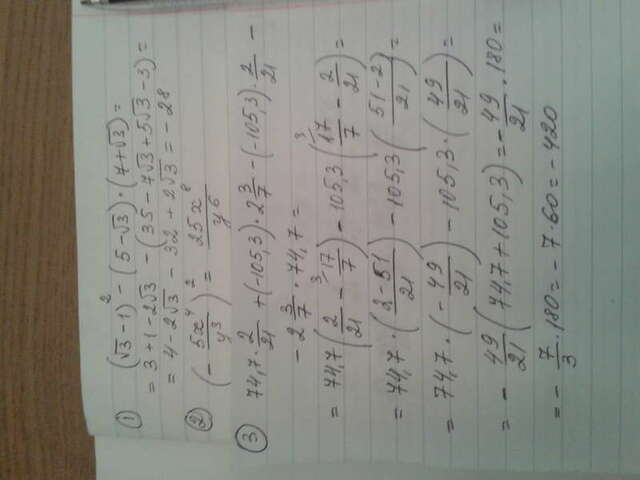 ① (√3-1)² - (5-√3)·(7+√3)=
= 3+1-2√3 - (35-7√3+5√3-3)=
= 4-2√3 - 32+2√3 = -28
② (-5x⁴/y³)² = 25x⁸/y⁶
③ 74,7·2/21 + (-105,3)·2 3/7 - (-105,3)·2/21 -
- 2 3/7·74,7 =
= 74,7(2/21 - ³17/7) - 105,3(³17/7 - 2/21)=
= 74,7·(2-51/21) - 105,3(51-2/21)=
= 74,7·(-49/21) - 105,3·(49/21)=
= -49/21(74,7+105,3) = -49/21·180=
= -7/3·180 = -7·60 = -420